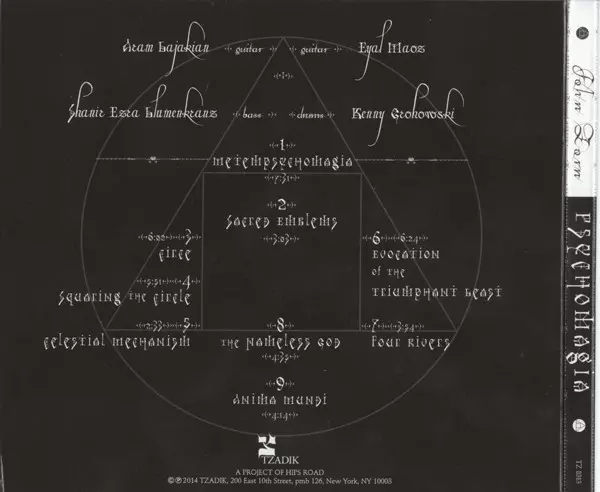 Aram Bajakian guitar guitar Eyal Maoz
Shanir Ezra Blumenkranz bass drums Kenny Grohowski
1
METEMPSYCHOMAGIA
7:31
2
SACRED EMBLEMS
3:03
6:02 3
CIRCE
5:51 4
SQUARING THE CIRCLE
2:33 5
CELESTIAL MECHANISM
6 6:24
EVOCATION
OF THE
TRIUMPHANT BEAST
7 3:54
FOUR RIVERS
8
THE NAMELESS GOD
4:35
9
ANIMA MUNDI
4:14
TZADIK
A PROJECT OF HIPS ROAD
©℗ 2014 TZADIK, 200 East 10th Street, pmb 126, New York, NY 10003
John Zorn
PSYCHOMAGIA
TZ 8313